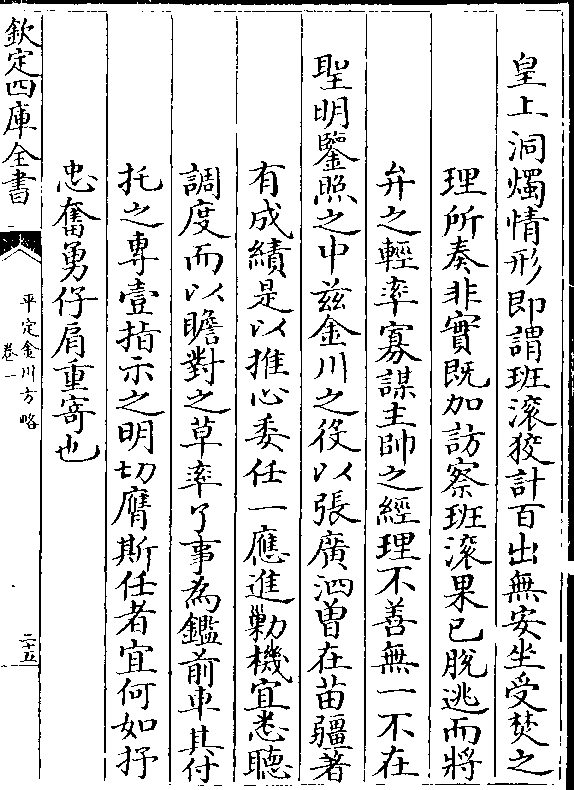 皇上洞燭情形即謂班滚狡計百出無安坐受焚之
理所奏非實既加訪察班滚果已脫逃而將
弁之輕率寡謀主帥之經理不善無一不在
聖明鑒照之中兹金川之役以張廣泗曽在苗疆著
有成績是以推心委任一應進勦機宜悉聽
調度而以瞻對之草率了事為鑑前車其付
托之專壹指示之明切膺斯任者宜何如抒
忠奮勇仔肩重寄也
欽定四庫全書
平定金川方略
卷一
二十五